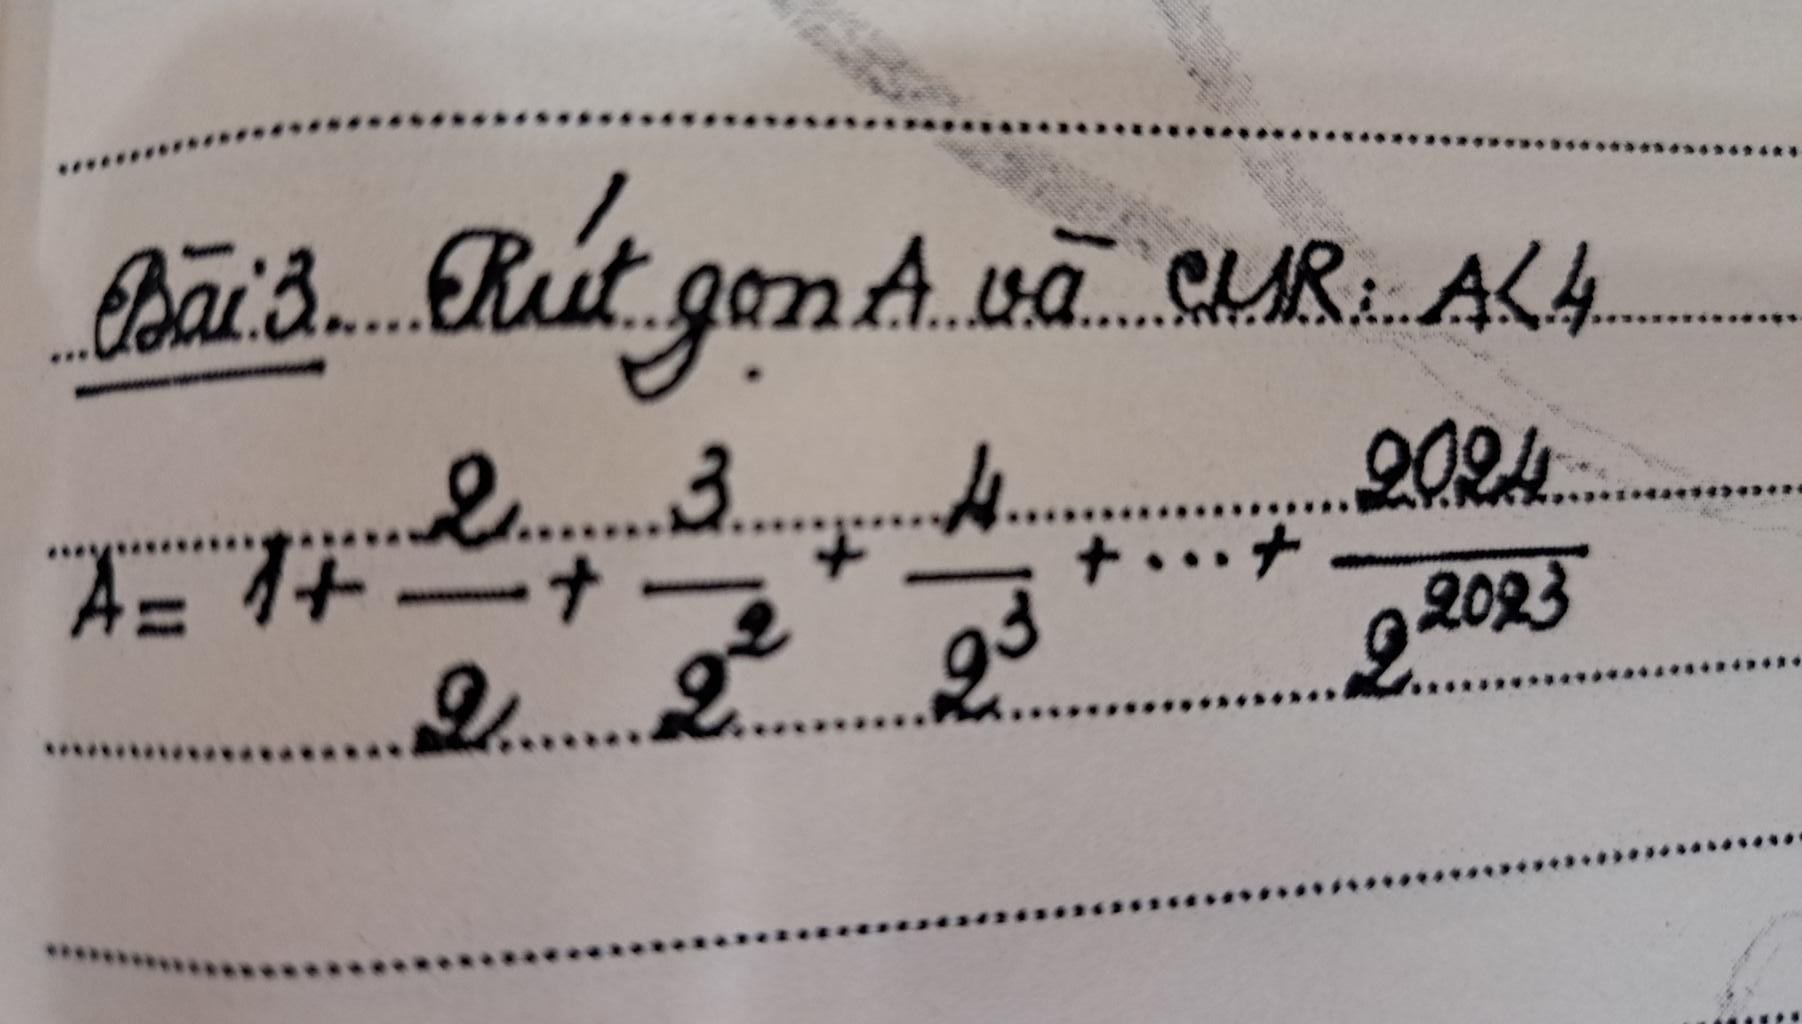 Bài 3. Rút gọn A và CMR: A < 4
A = 1 + 2/2 + 3/2^2 + 4/2^3 + ... + 2024/2^2023